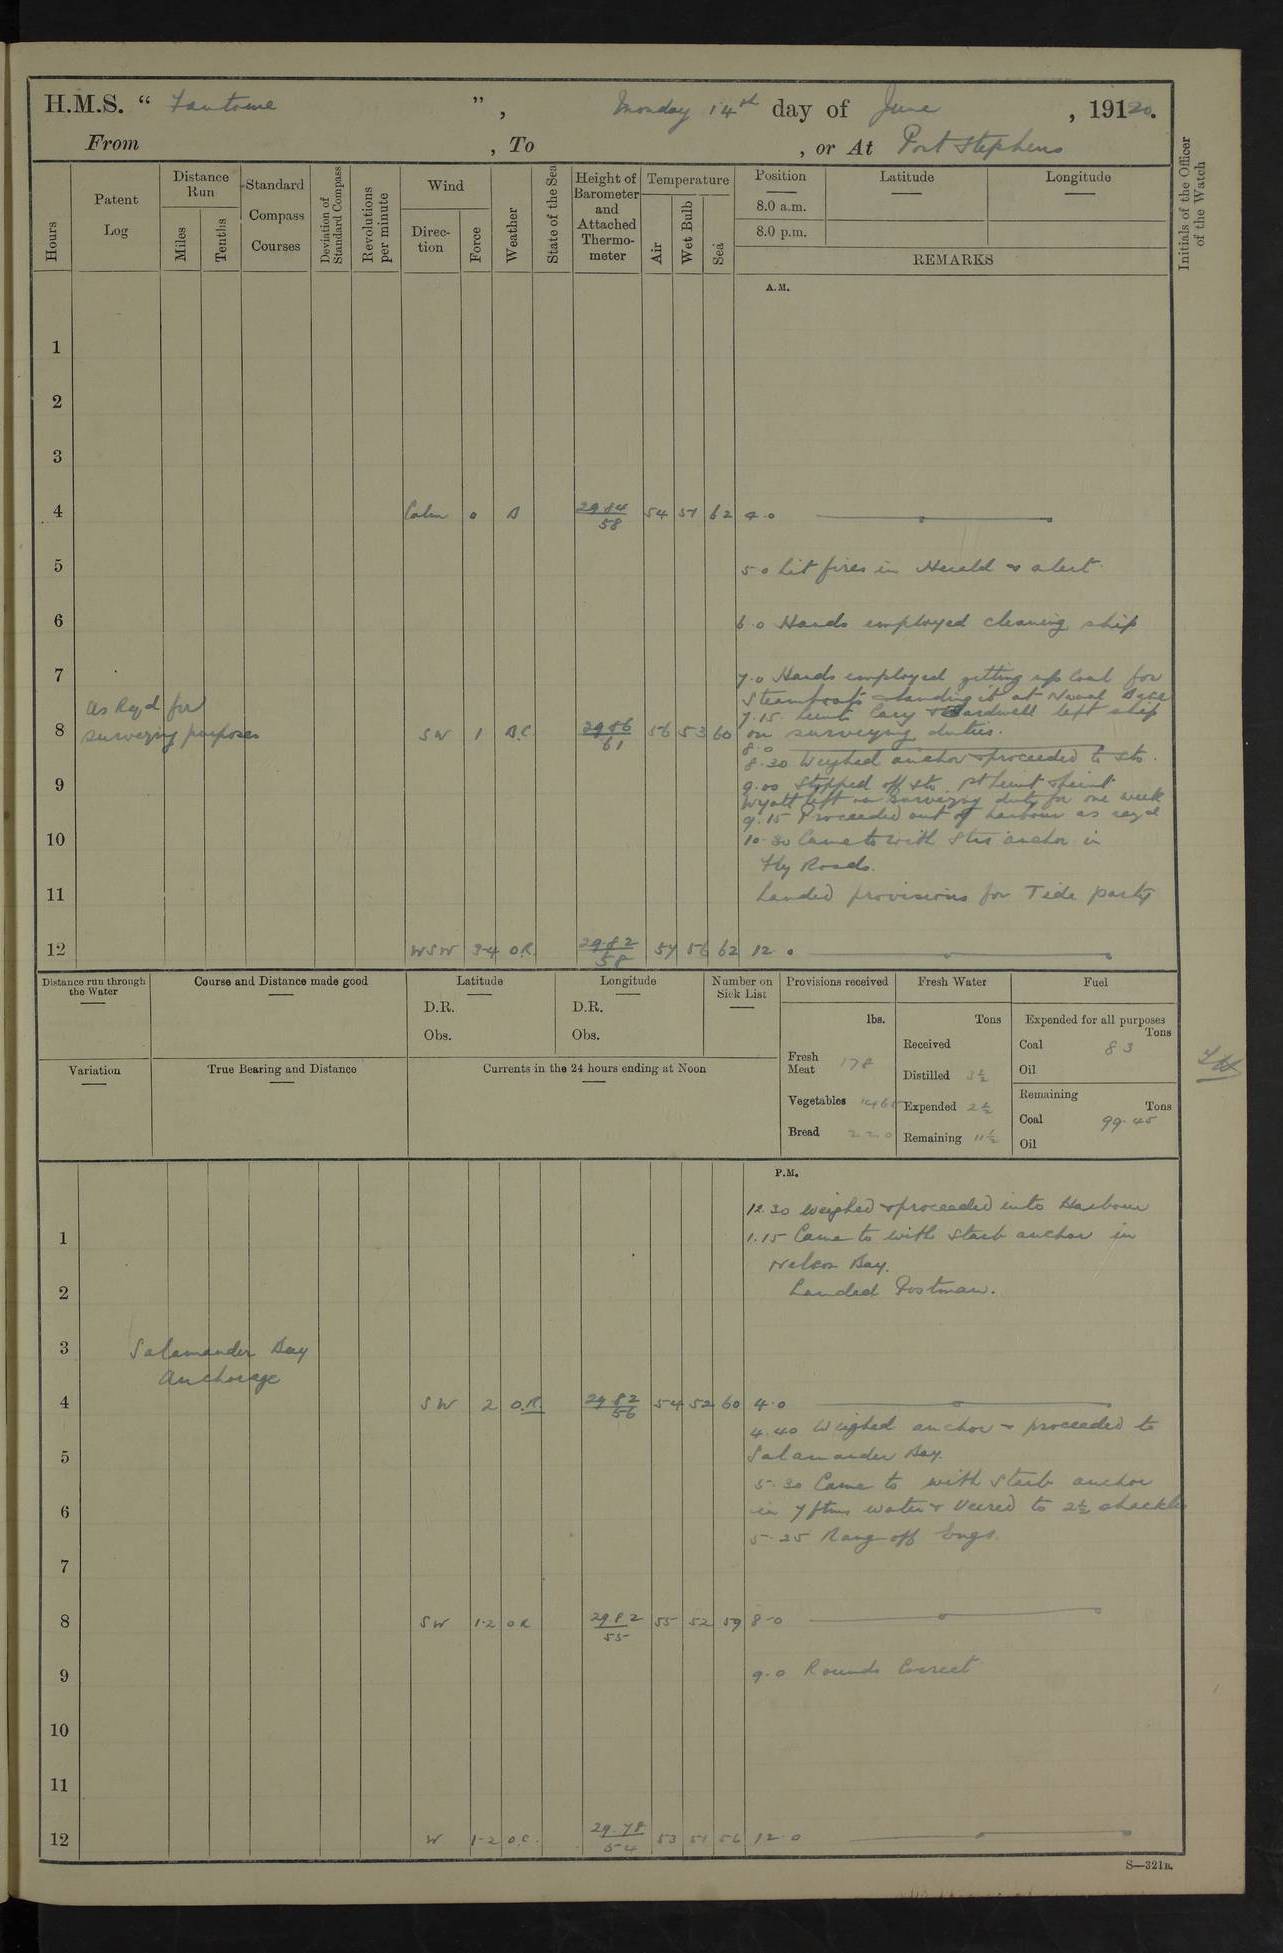 H.M.S. " Fantome ", Monday 14th day of June, 19120.
From , To , or At Port Stephens
Hours
Patent Log
Distance Run
Miles
Tenths
Standard Compass Courses
Deviation of Standard Compass
Revolutions per minute
Wind
Direction
Force
Weather
State of the Sea
Height of Barometer and Attached Thermometer
Temperature
Air
Wet Bulb
Sea
Position
8.0 a.m.
8.0 p.m.
Latitude
Longitude
REMARKS
Initials of the Officer of the Watch
A.M.
1
2
3
4 Calm 0 B 29.84 58 54 51 62 4.0
5 5.0 Lit fires in Herald & alert
6 6.0 Hands employed cleaning ship
7 7.0 Hands employed getting up coal for
Steamboats & landing it at Naval Base
As Reqd for
7.15 Lieuts Cary & Bardwell left ship
8 surveying purposes SW 1 B.C. 29.86 61 56 53 60 on surveying duties.
8.0
8.30 Weighed anchor & proceeded to
9 9.00 Stopped off
Wyatt left on surveying duty for one week
9.15 Proceeded out of harbour as reqd
10 10.30 Came to with anchor in
Fly Roads.
11 Landed provisions for Tide party
12 WSW 3-4 O.R. 29.82 58 57 56 62 12.0
Distance run through the Water
Course and Distance made good
Latitude
D.R.
Obs.
Longitude
D.R.
Obs.
Number on Sick List
Provisions received
lbs.
Fresh Meat 178
Vegetables
Bread 220
Fresh Water
Tons
Received
Distilled 3½
Expended 2½
Remaining 11½
Fuel
Expended for all purposes
Tons
Coal 83
Oil
Remaining
Tons
Coal 99.45
Oil
Variation
True Bearing and Distance
Currents in the 24 hours ending at Noon
P.M.
12.30 Weighed & proceeded into Harbour
1 1.15 Came to with Starb anchor in
Nelson Bay.
2 Landed Postman.
3 Salamander Bay
Anchorage
4 SW 2 O.R. 29.82 56 54 52 60 4.0
4.40 Weighed anchor & proceeded to
5 Salamander Bay.
5.30 Came to with Starb anchor
6 in 7 fthms water & Veered to 2½ shackles
5.25 Rang off Engs.
7
8 SW 1-2 O R 29.82 55 55 52 59 8.0
9 9.0 Rounds Correct
10
11
12 W 1-2 O.C. 29.78 54 53 51 56 12.0
S—321B.